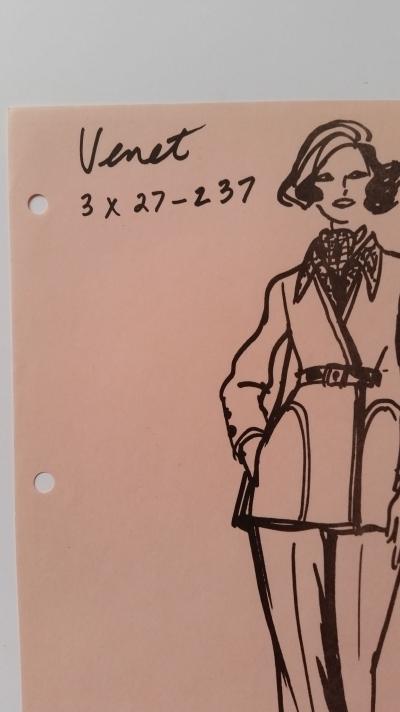 Venet
3 x 27-237